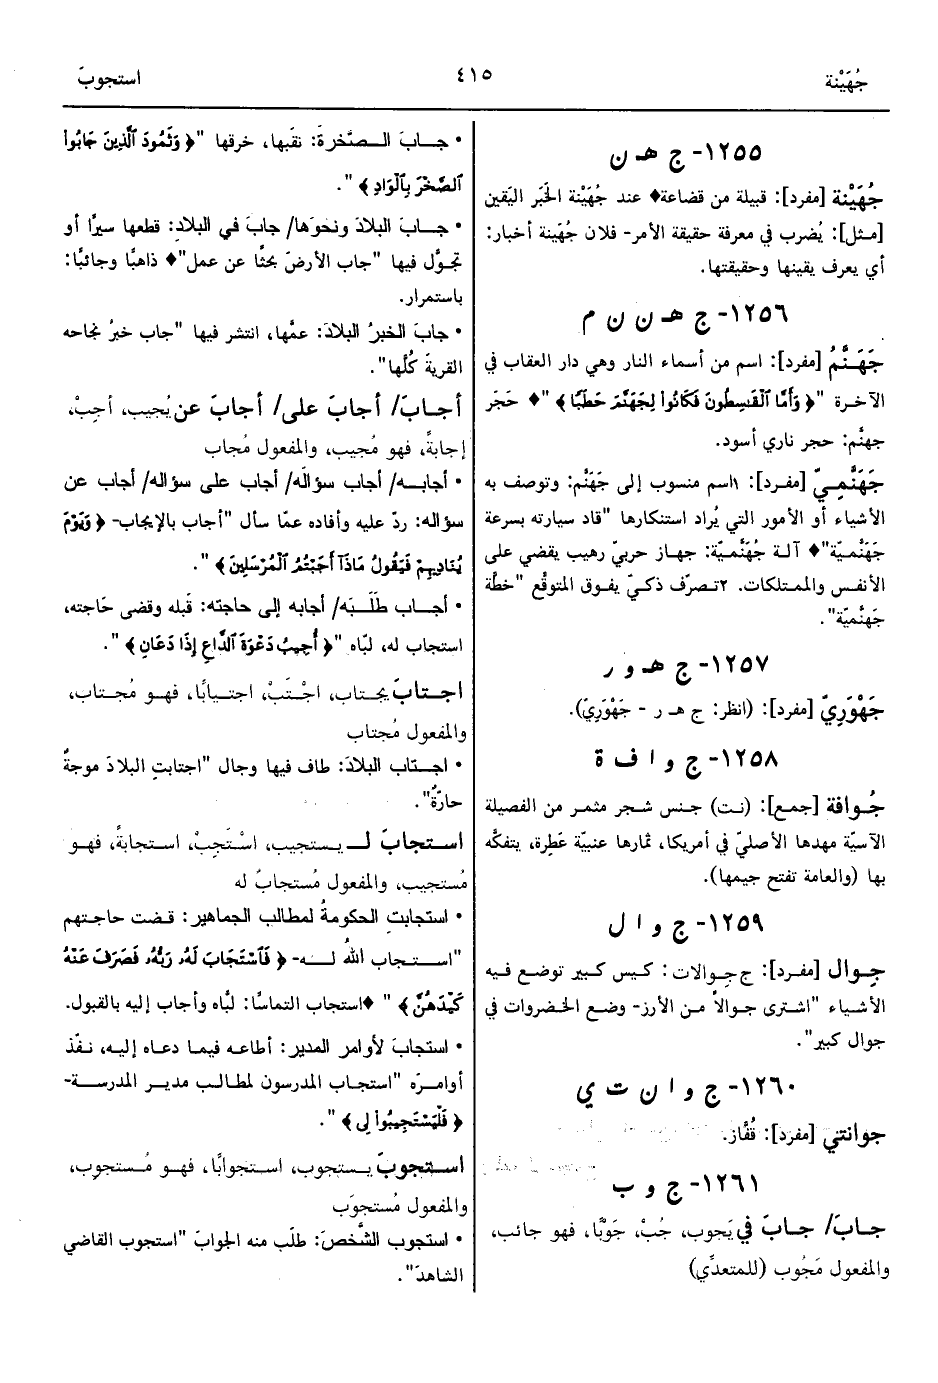 جُهَيْنة
٤١٥
استجوبَ
١٢٥٥- ج هـ ن
جُهَيْنة [مفرد]: قبيلة من قضاعة♦ عند جُهَيْنة الخَبَر اليَقين
[مثل]: يُضرب في معرفة حقيقة الأمر- فلان جُهَينة أخبار:
أي يعرف يقينها وحقيقتها.
١٢٥٦- ج هـ ن ن م
جَهَنَّمُ [مفرد]: اسم من أسماء النار وهي دار العقاب في
الآخرة "﴿ وَأَمَّا ٱلْقَٰسِطُونَ فَكَانُوا۟ لِجَهَنَّمَ حَطَبًا ﴾"♦ حَجَر
جهنَّم: حجر ناري أسود.
جَهَنَّمِيّ [مفرد]: ١اسم منسوب إلى جَهَنَّم: وتوصف به
الأشياء أو الأمور التي يُراد استنكارها "قاد سيارته بسرعة
جَهَنَّميّة"♦ آلة جُهَنَّميّة: جهاز حربيّ رهيب يقضي على
الأنفس والممتلكات. ٢تصرّف ذكيّ يفوق المتوقّع "خطّة
جَهَنَّميّة".
١٢٥٧- ج هـ و ر
جَهْوَرِيّ [مفرد]: (انظر: ج هـ ر - جَهْوَرِيّ).
١٢٥٨- ج و ا ف ة
جُوافة [جمع]: (نت) جنس شجر مثمر من الفصيلة
الآسيّة مهدها الأصليّ في أمريكا، ثمارها عنبيّة عَطِرة، يتفكّه
بها (والعامة تفتح جيمها).
١٢٥٩- ج و ا ل
جِوال [مفرد]: ج جِوالات: كيس كبير توضع فيه
الأشياء "اشترى جوالاً من الأرز- وضع الخضروات في
جوال كبير".
١٢٦٠- ج و ا ن ت ي
جوانتي [مفرد]: قُفّاز.
١٢٦١- ج و ب
جابَ/ جابَ في يَجوب، جُبْ، جَوْبًا، فهو جائب،
والمفعول مَجُوب (للمتعدِّي)
• جـابَ الـصَّخرةَ: نقَبها، خرقها "﴿ وَثَمُودَ ٱلَّذِينَ جَابُوا۟
ٱلصَّخْرَ بِٱلْوَادِ ﴾".
• جـابَ البلادَ ونحوَها/ جابَ في البلادِ: قطعها سيرًا أو
تجوَّل فيها "جاب الأرضَ بحثًا عن عمل"♦ ذاهبًا وجائبًا:
باستمرار.
• جابَ الخبرُ البلادَ: عمَّها، انتشر فيها "جاب خبرُ نجاحه
القريةَ كُلَّها".
أجـابَ/ أجابَ على/ أجابَ عن يُجيب، أجِبْ،
إجابةً، فهو مُجيب، والمفعول مُجاب
• أجابـه/ أجاب سؤالَه/ أجاب على سؤاله/ أجاب عن
سؤاله: ردّ عليه وأفاده عمّا سأل "أجاب بالإيجاب- ﴿ وَيَوْمَ
يُنَادِيهِمْ فَيَقُولُ مَاذَآ أَجَبْتُمُ ٱلْمُرْسَلِينَ ﴾".
• أجـاب طَلَبَه/ أجابه إلى حاجته: قَبله وقضى حَاجته،
استجاب له، لبّاه "﴿ أُجِيبُ دَعْوَةَ ٱلدَّاعِ إِذَا دَعَانِ ﴾".
اجـتابَ يجـتاب، اجْتَبْ، اجتـيابًا، فهـو مُجـتاب،
والمفعول مُجتاب
• اجـتاب البلادَ: طاف فيها وجال "اجتابتِ البلادَ موجةٌ
حارّةٌ".
اسـتجابَ لـ يـستجيب، اسْتَجِبْ، استجابةً، فهو
مُستجيب، والمفعول مُستجابٌ له
• استجابتِ الحكومةُ لمطالب الجماهير: قضت حاجتهم
"اسـتجاب اللهُ لـه- ﴿ فَٱسْتَجَابَ لَهُۥ رَبُّهُۥ فَصَرَفَ عَنْهُ
كَيْدَهُنَّ ﴾ "♦استجاب التماسًا: لبَّاه وأجاب إليه بالقبول.
• استجابَ لأوامر المدير: أطاعه فيما دعاه إليه، نفّذ
أوامرَه "استجاب المدرسون لمطالب مديـر المدرسـة-
﴿ فَلْيَسْتَجِيبُوا۟ لِى ﴾".
اسـتجوبَ يـستجوب، استجوابًا، فهـو مُـستجوِب،
والمفعول مُستجوَب
• استجوب الشَّخصَ: طلَب منه الجوابَ "استجوب القاضي
الشاهدَ".